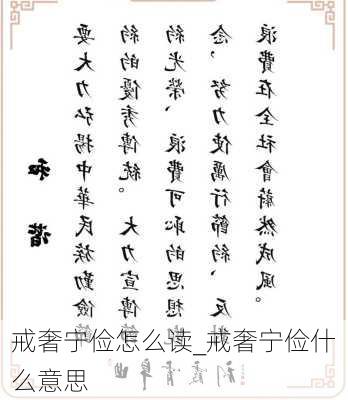 和諧
要大力弘揚中華民族勤儉節
約的優秀傳統。大力宣傳節
約光榮、浪費可恥的思想
念，努力使厲行節約、反
浪費在全社會蔚然成風。
戒奢宁俭怎么读_戒奢宁俭什
么意思